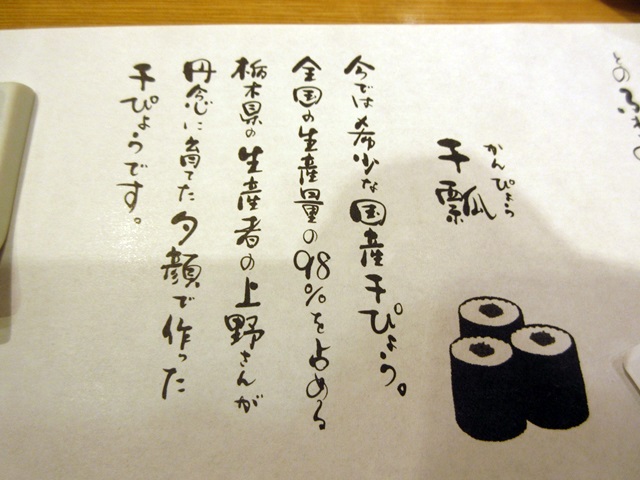 かんぴょう
干瓢
今では希少な国産干ぴょう。
全国の生産量の98%を占める
栃木県の生産者の上野さんが
丹念に育てた夕顔で作った
干ぴょうです。